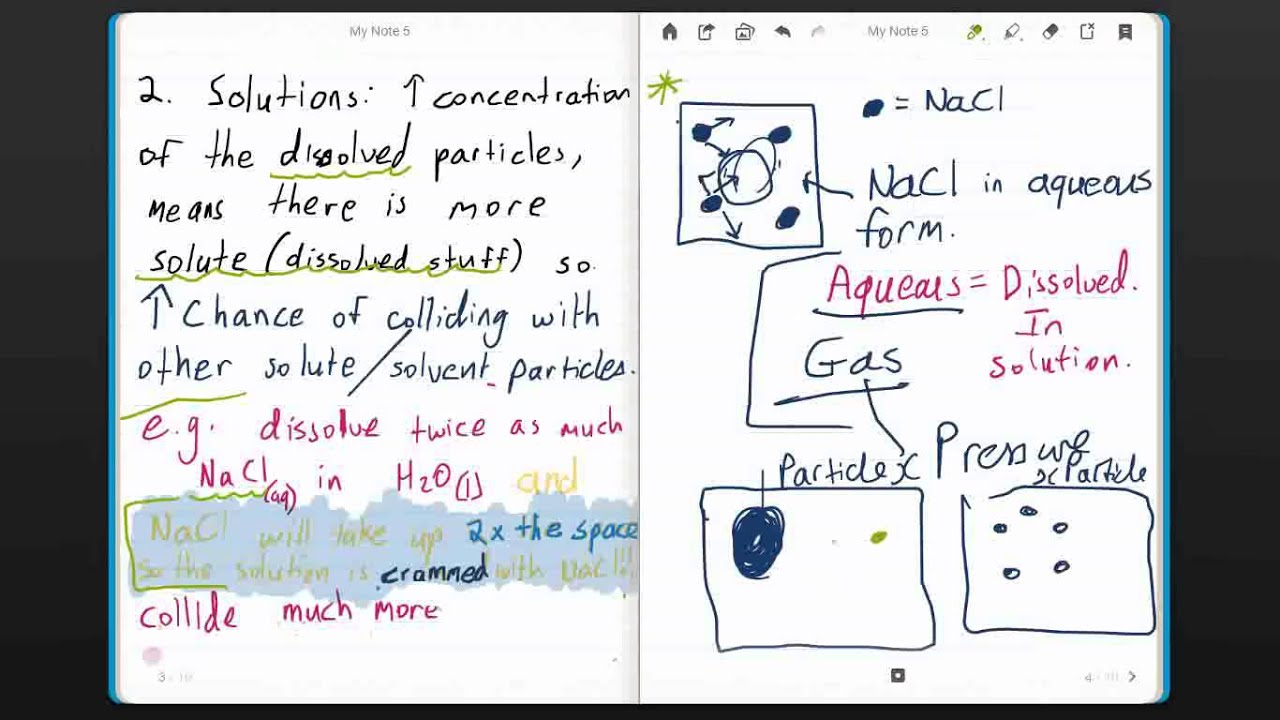 My Note 5
2. Solutions: ↑ concentration
of the dissolved particles,
means there is more
solute (dissolved stuff) so
↑ Chance of colliding with
other solute/solvent particles.
e.g. dissolve twice as much
NaCl(aq) in H2O(l) and
NaCl will take up 2x the space
so the solution is crammed with NaCl!!
collide much more
3 / 10
My Note 5
= NaCl
NaCl in aqueous
form.
Aqueous = Dissolved.
In
solution.
Gas
Pressure
Particle x
x Particle
4 / 10